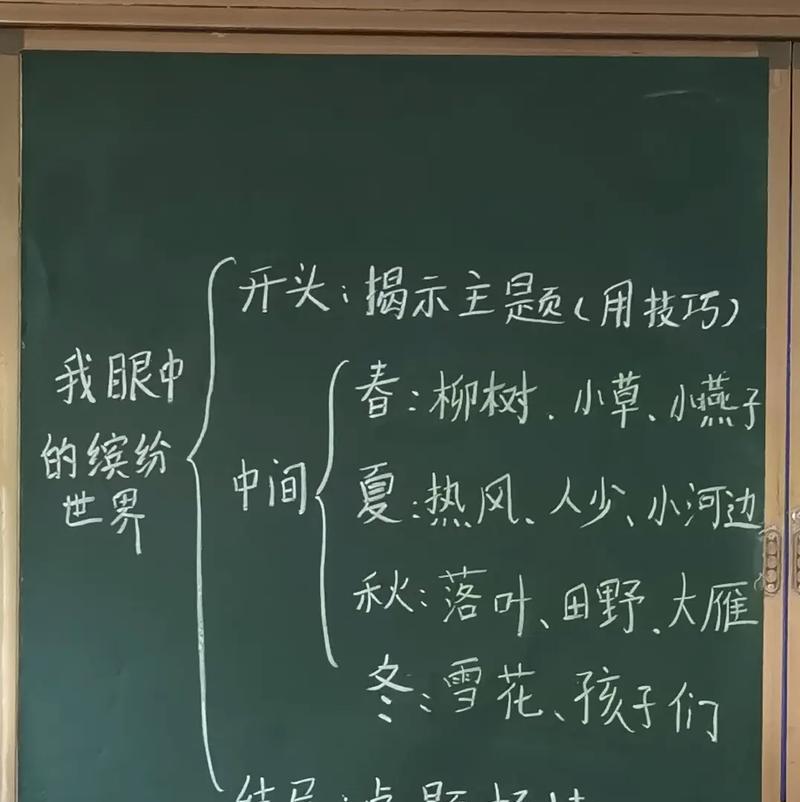 我眼中
的缤纷
世界
开头：揭示主题（用技巧）
中间
春：柳树、小草、小燕子
夏：热风、人少、小河边
秋：落叶、田野、大雁
冬：雪花、孩子们